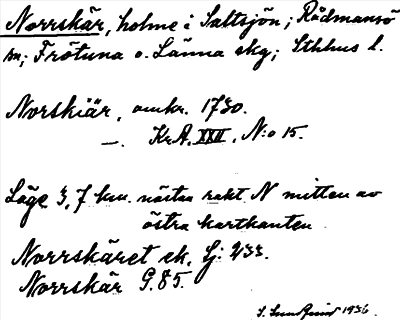 Norrskär, holme i Saltsjön; Rådmansö
sn; Frötuna o. Länna skg; Sthlms l.
Norskiär, omkr. 1730.
—. KrA, XXII, N:o 15.
Läge 3,7 km. nästan rakt N mitten av
östra kartkanten
Norrskäret ek. G: 233.
Norrskär G. 85.
S. 1936.